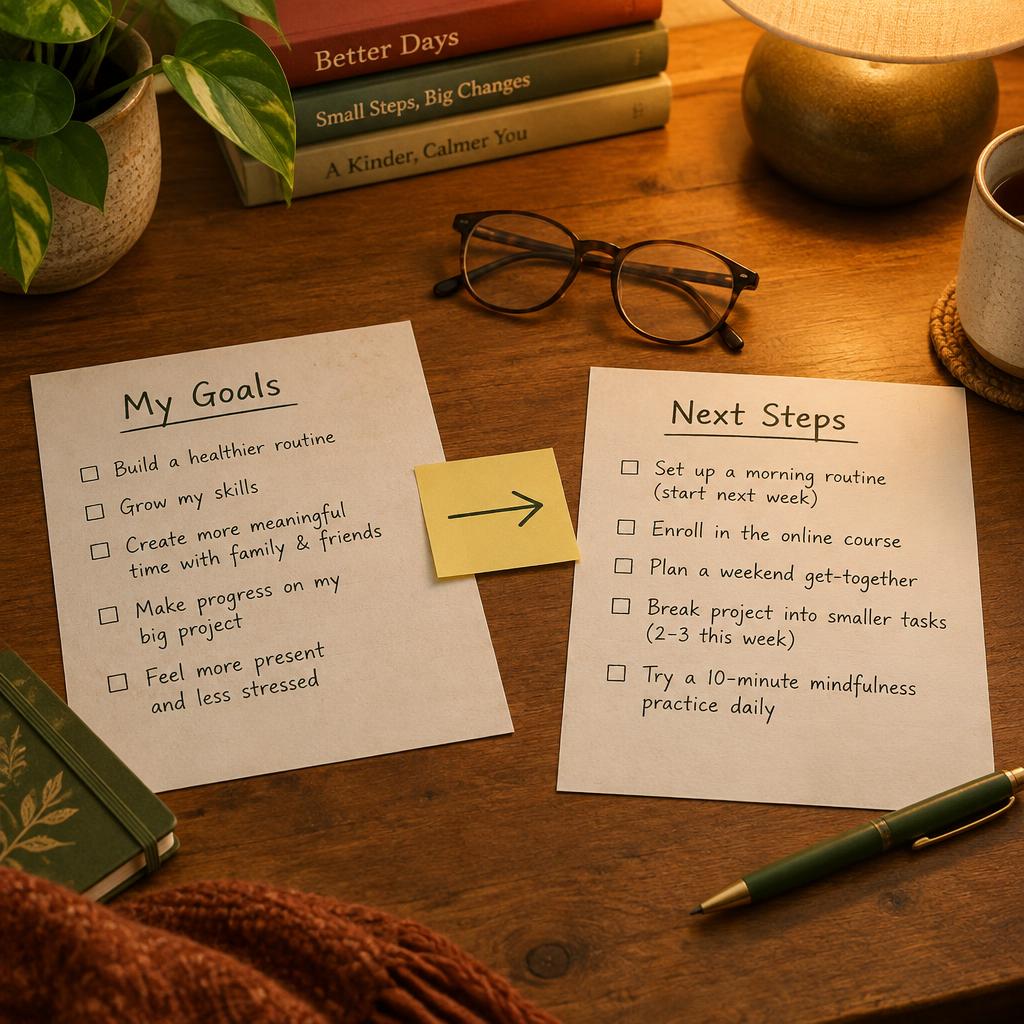 Better Days
Small Steps, Big Changes
A Kinder, Calmer You
My Goals
☐ Build a healthier routine
☐ Grow my skills
☐ Create more meaningful
time with family & friends
☐ Make progress on my
big project
☐ Feel more present
and less stressed
→
Next Steps
☐ Set up a morning routine
(start next week)
☐ Enroll in the online course
☐ Plan a weekend get-together
☐ Break project into smaller tasks
(2–3 this week)
☐ Try a 10-minute mindfulness
practice daily